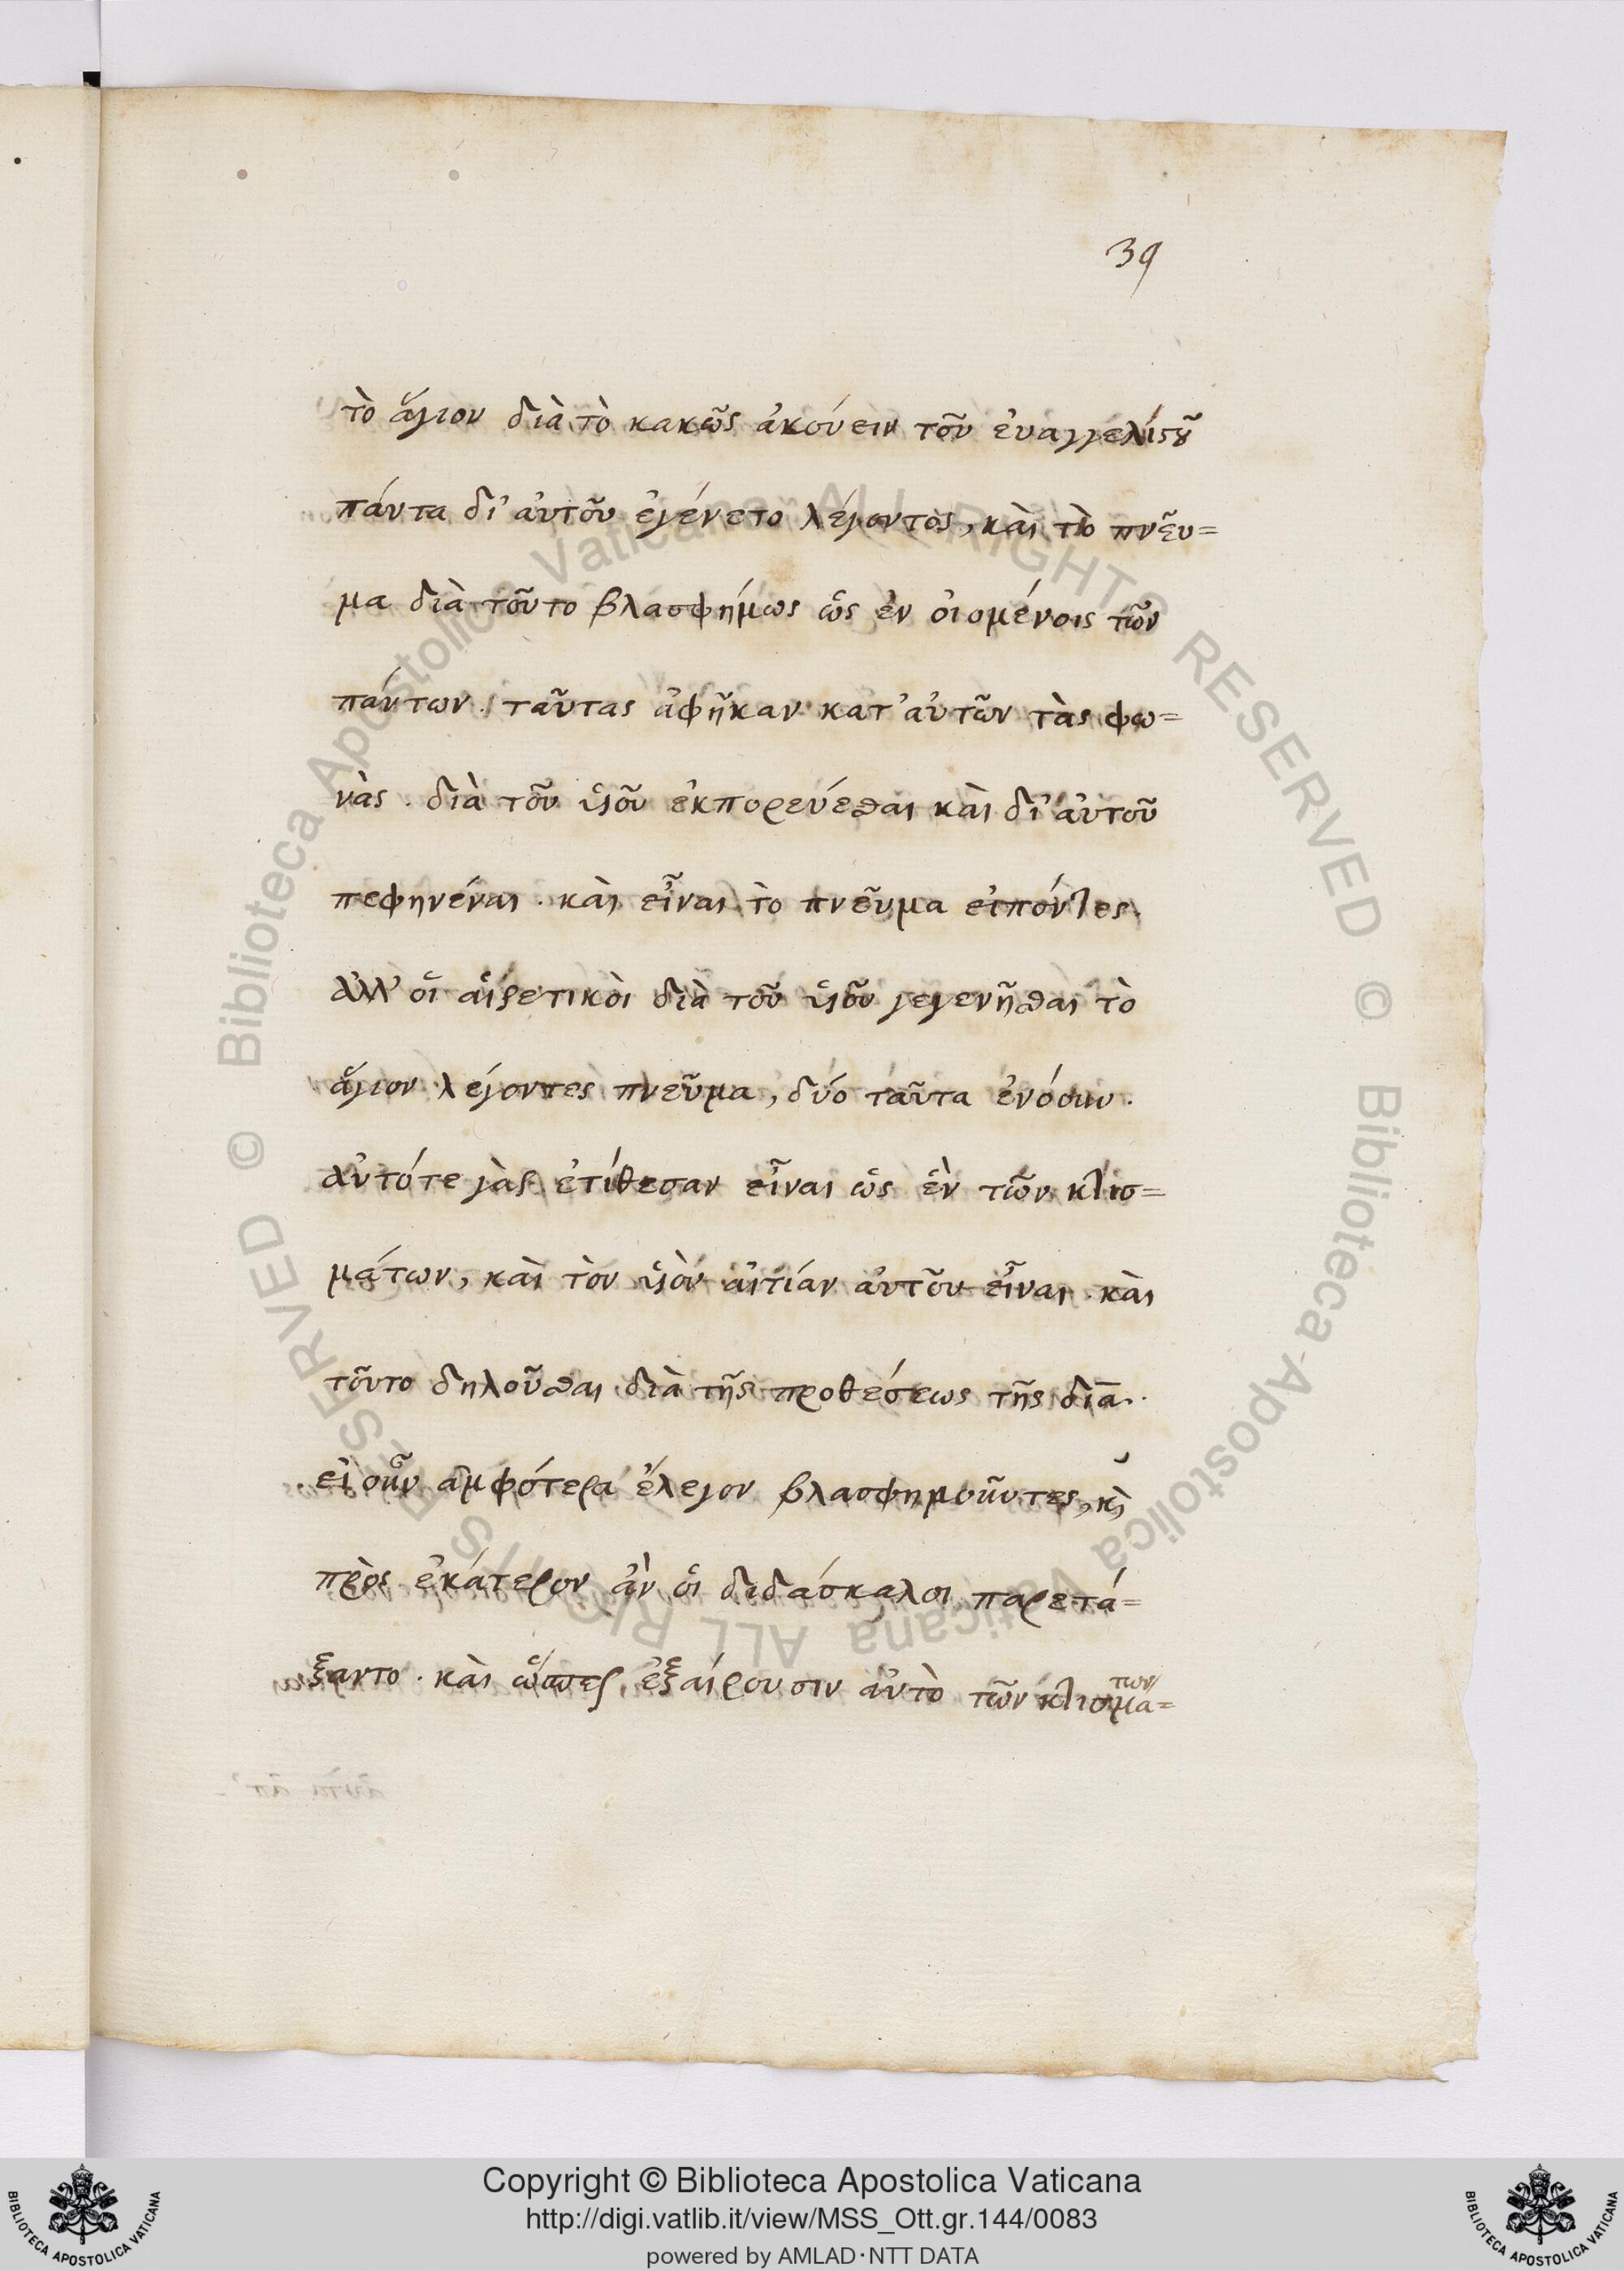 39
τὸ ἅγιον διὰ τὸ κακῶς ἀκούειν τοῦ ἐυαγγελίςȣ͂
πάντα δι' ἀυτοῦ ἐγένετο λέγοντος, κὰι τὸ πνεῦ=
μα διὰ τοῦτο βλασφήμως ὡς ἐν οἰομένοις τῶν
πάντων. ταῦτας ἀφῆκαν κατ' ἀυτῶν τὰς φω=
νὰς. διὰ τοῦ ὑιοῦ ἐκπορεύεσθαι κὰι δι' ἀυτοῦ
πεφηνέναι. κὰι εἶναι τὸ πνεῦμα εἰπόντες.
ἀλλ' ὁι ἁιρετικὸι διὰ τοῦ ὑιοῦ γεγενῆσθαι τὸ
ἅγιον λέγοντες πνεῦμα, δύο ταῦτα ἐνόουν.
ἀυτότε γὰρ ἐτίθεσαν εἶναι ὡς ἓν τῶν κτισ=
μάτων, κὰι τὸν ὑιὸν ἀιτίαν ἀυτοῦ εἶναι. κὰι
τοῦτο δηλοῦσθαι διὰ τῆς προθέσεως τῆς διὰ.
εἰ οὖν ἀμφότερα ἔλεγον βλασφημοῦντες, κὶ
πρὸς ἑκάτερον ἂν ὁι διδάσκαλοι παρετά=
ξαντο. κὰι ὥσπερ ἐξαίρουσιν ἀυτὸ τῶν κτισμά=
των
Copyright © Biblioteca Apostolica Vaticana
http://digi.vatlib.it/view/MSS_Ott.gr.144/0083
powered by AMLAD·NTT DATA
BIBLIOTECA APOSTOLICA VATICANA
BIBLIOTECA APOSTOLICA VATICANA
© Biblioteca Apostolica Vaticana ALL RIGHTS RESERVED
© Biblioteca Apostolica Vaticana ALL RIGHTS RESERVED